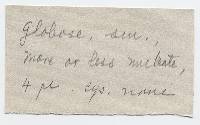 globose, sm.,
more or less
4 pt. cys. none